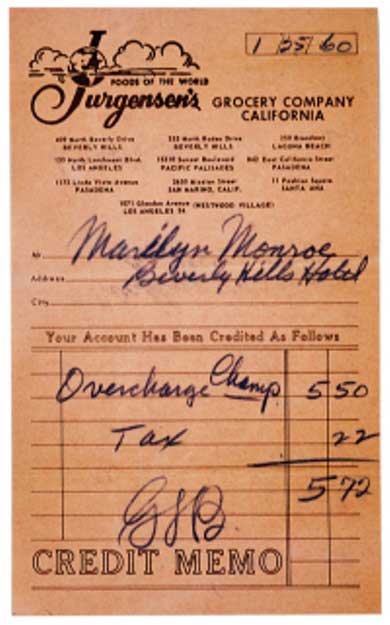 1 25 60
FOODS OF THE WORLD
Jurgensen's GROCERY COMPANY
CALIFORNIA
409 North Beverly Drive
BEVERLY HILLS
352 North Rodeo Drive
BEVERLY HILLS
Broadway
LAGUNA BEACH
North Larchmont Blvd.
LOS ANGELES
Sunset Boulevard
PACIFIC PALISADES
842 East California Street
PASADENA
Linda Vista Avenue
PASADENA
Mission Street
SAN MARINO, CALIF.
11 Fashion Square
SANTA ANA
1071 Glendon Avenue (WESTWOOD VILLAGE)
LOS ANGELES 24
M Marilyn Monroe
Address Beverly Hills Hotel
City
Your Account Has Been Credited As Follows
Overcharge Champ. 5 50
Tax 22
5 72
CREDIT MEMO